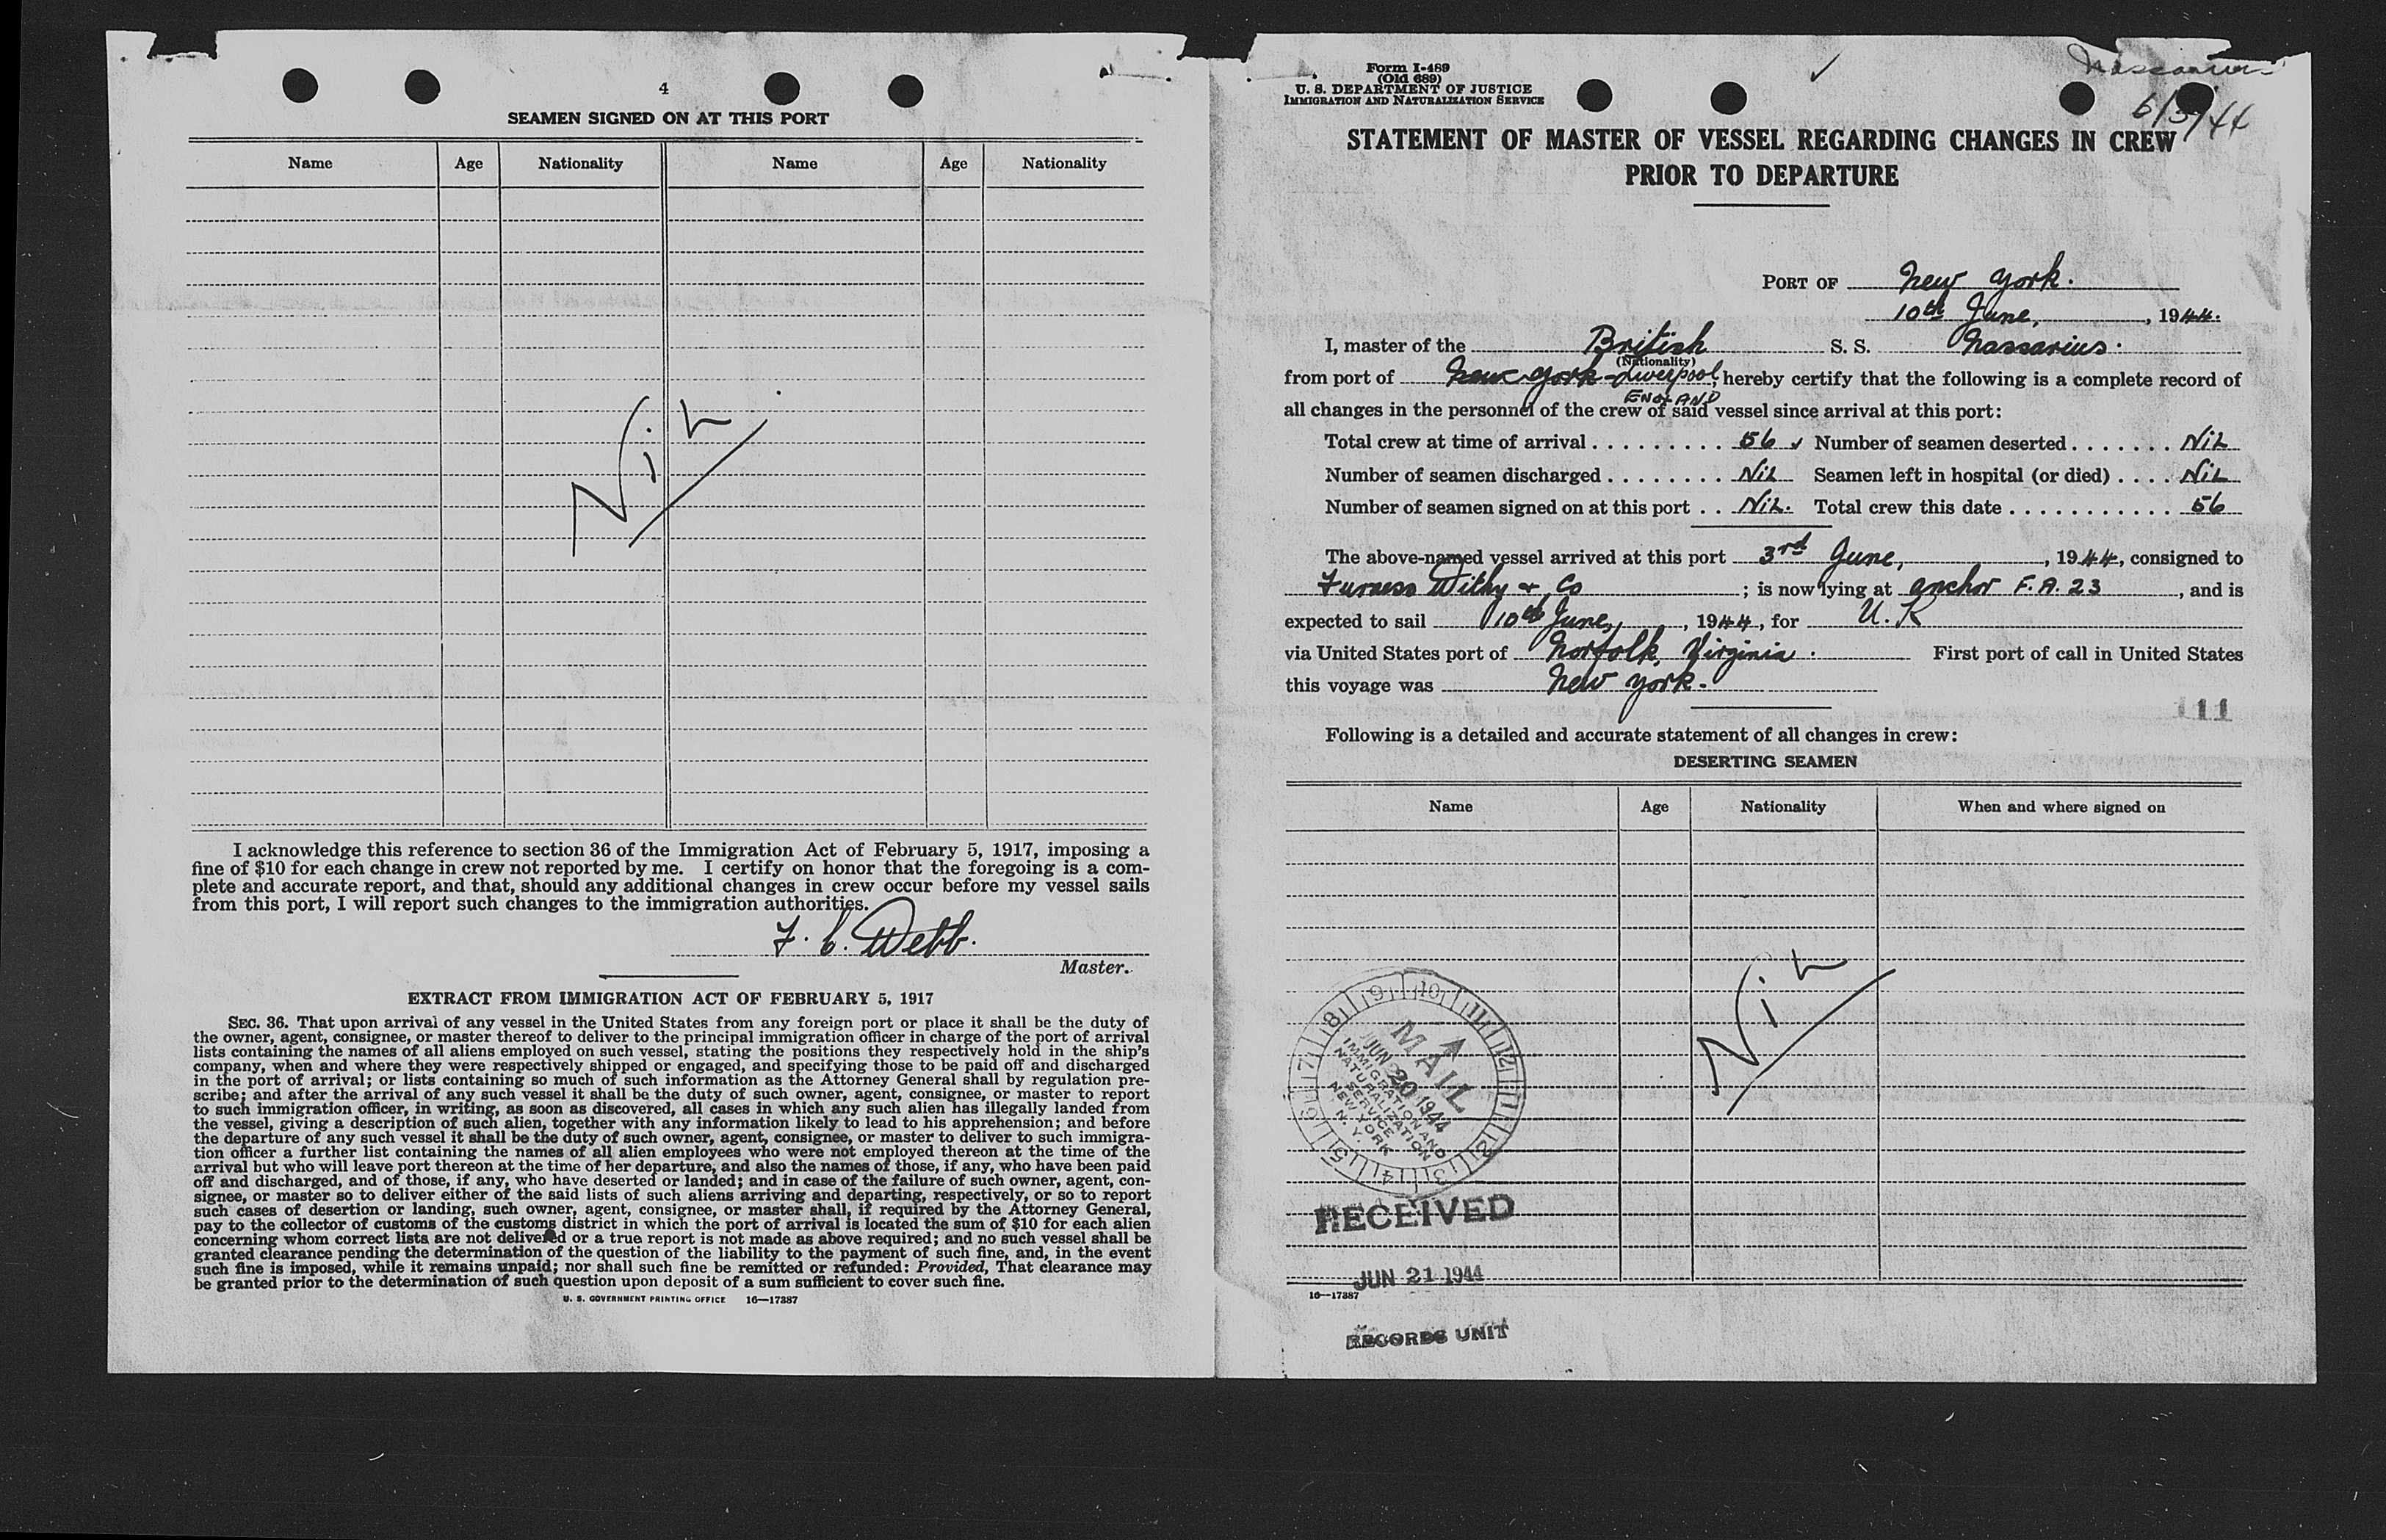 4
SEAMEN SIGNED ON AT THIS PORT
Name Age Nationality Name Age Nationality
Nil
I acknowledge this reference to section 36 of the Immigration Act of February 5, 1917, imposing a
fine of $10 for each change in crew not reported by me. I certify on honor that the foregoing is a com-
plete and accurate report, and that, should any additional changes in crew occur before my vessel sails
from this port, I will report such changes to the immigration authorities.
F. C. Webb.
Master.
EXTRACT FROM IMMIGRATION ACT OF FEBRUARY 5, 1917
SEC. 36. That upon arrival of any vessel in the United States from any foreign port or place it shall be the duty of
the owner, agent, consignee, or master thereof to deliver to the principal immigration officer in charge of the port of arrival
lists containing the names of all aliens employed on such vessel, stating the positions they respectively hold in the ship's
company, when and where they were respectively shipped or engaged, and specifying those to be paid off and discharged
in the port of arrival; or lists containing so much of such information as the Attorney General shall by regulation pre-
scribe; and after the arrival of any such vessel it shall be the duty of such owner, agent, consignee, or master to report
to such immigration officer, in writing, as soon as discovered, all cases in which any such alien has illegally landed from
the vessel, giving a description of such alien, together with any information likely to lead to his apprehension; and before
the departure of any such vessel it shall be the duty of such owner, agent, consignee, or master to deliver to such immigra-
tion officer a further list containing the names of all alien employees who were not employed thereon at the time of the
arrival but who will leave port thereon at the time of her departure, and also the names of those, if any, who have been paid
off and discharged, and of those, if any, who have deserted or landed; and in case of the failure of such owner, agent, con-
signee, or master so to deliver either of the said lists of such aliens arriving and departing, respectively, or so to report
such cases of desertion or landing, such owner, agent, consignee, or master shall, if required by the Attorney General,
pay to the collector of customs of the customs district in which the port of arrival is located the sum of $10 for each alien
concerning whom correct lists are not delivered or a true report is not made as above required; and no such vessel shall be
granted clearance pending the determination of the question of the liability to the payment of such fine, and, in the event
such fine is imposed, while it remains unpaid; nor shall such fine be remitted or refunded: Provided, That clearance may
be granted prior to the determination of such question upon deposit of a sum sufficient to cover such fine.
U. S. GOVERNMENT PRINTING OFFICE 16—17387
Form I-489
(Old 689)
U. S. DEPARTMENT OF JUSTICE
IMMIGRATION AND NATURALIZATION SERVICE
✓
Nassarius
6/3/44
STATEMENT OF MASTER OF VESSEL REGARDING CHANGES IN CREW
PRIOR TO DEPARTURE
PORT OF New York.
10th June, , 1944.
I, master of the British S. S. Nassarius.
(Nationality)
from port of New York - Liverpool, hereby certify that the following is a complete record of
ENGLAND
all changes in the personnel of the crew of said vessel since arrival at this port:
Total crew at time of arrival . . . . . . . . . 56 ✓ Number of seamen deserted . . . . . . . Nil
Number of seamen discharged . . . . . . . . Nil Seamen left in hospital (or died) . . . . Nil
Number of seamen signed on at this port . . Nil. Total crew this date . . . . . . . . . . . . 56
The above-named vessel arrived at this port 3rd June, , 1944, consigned to
Furness Withy & Co ; is now lying at anchor F.A. 23 , and is
expected to sail 10th June, , 1944, for U.K
via United States port of Norfolk, Virginia. First port of call in United States
this voyage was New York.
11
Following is a detailed and accurate statement of all changes in crew:
DESERTING SEAMEN
Name Age Nationality When and where signed on
Nil
9 10 11 12 1 2 3 4 5 6 7 8
MAIL
JUN 20 1944
IMMIGRATION AND
NATURALIZATION
SERVICE
NEW YORK
N. Y.
RECEIVED
JUN 21 1944
16—17387
RECORDS UNIT